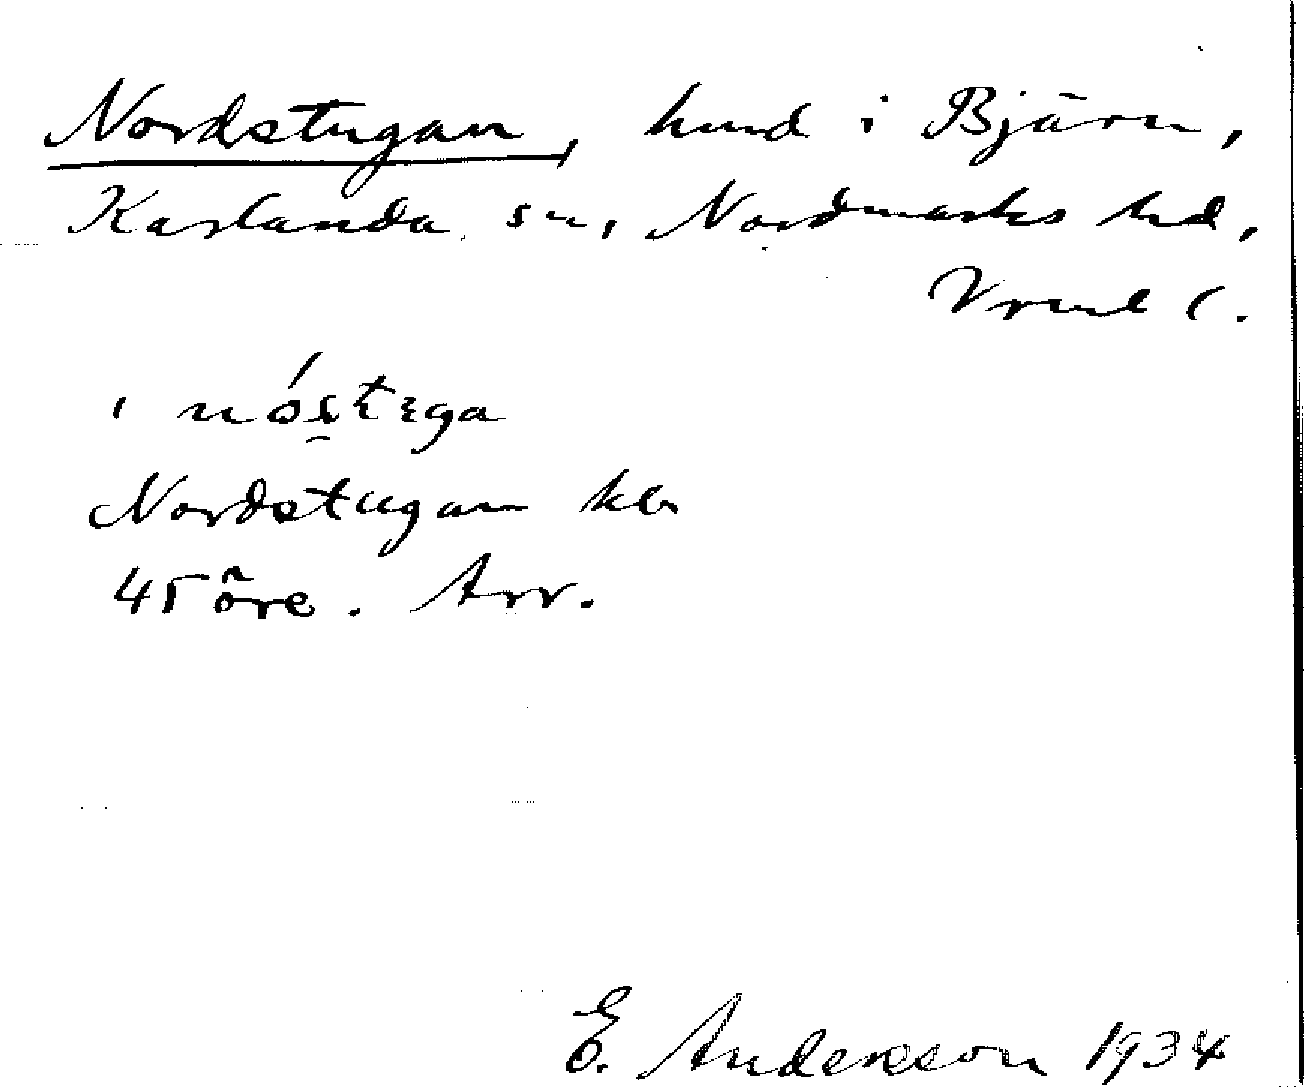 Nordstugan, hmd i Bjärn,
Karlanda sn, Nordmarks hd,
Vrml l.
i
Nordstugan kbr
45 öre. Arr.
E. Andersson 1934